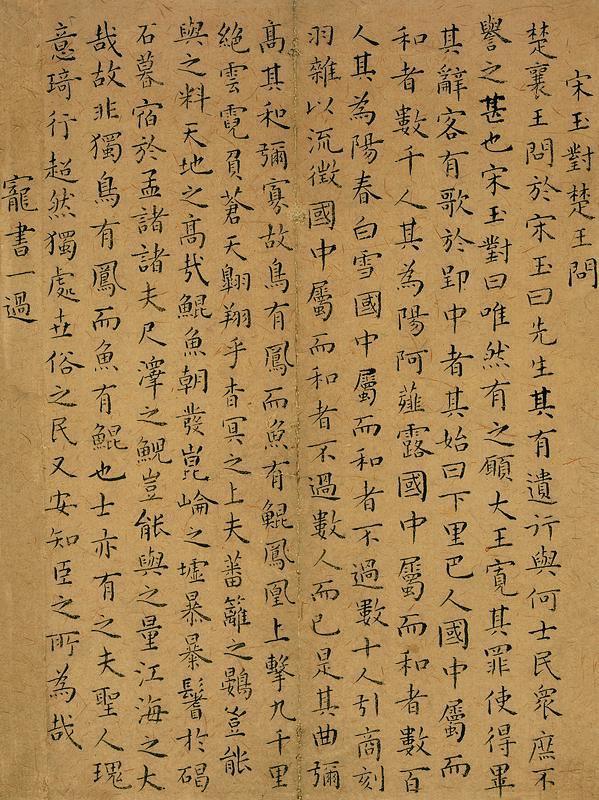 宋玉對楚王問
楚襄王問於宋玉曰先生其有遺行與何士民衆庶不
譽之甚也宋玉對曰唯然有之願大王寛其罪使得畢
其辭客有歌於郢中者其始曰下里巴人國中屬而
和者數千人其為陽阿薤露國中屬而和者數百
人其為陽春白雪國中屬而和者不過數十人引商刻
羽雜以流徵國中屬而和者不過數人而已是其曲彌
髙其和彌寡故鳥有鳳而魚有鯤鳳凰上擊九千里
絕雲霓負蒼天翺翔乎杳冥之上夫蕃籬之鷃豈能
與之料天地之髙哉鯤魚朝發崑崘之墟暴暴鬐於碣
石暮宿於孟諸諸夫尺澤之鯢豈能與之量江海之大
哉故非獨鳥有鳳而魚有鯤也士亦有之夫聖人瑰
意琦行超然獨處世俗之民又安知臣之所為哉
寵書一過